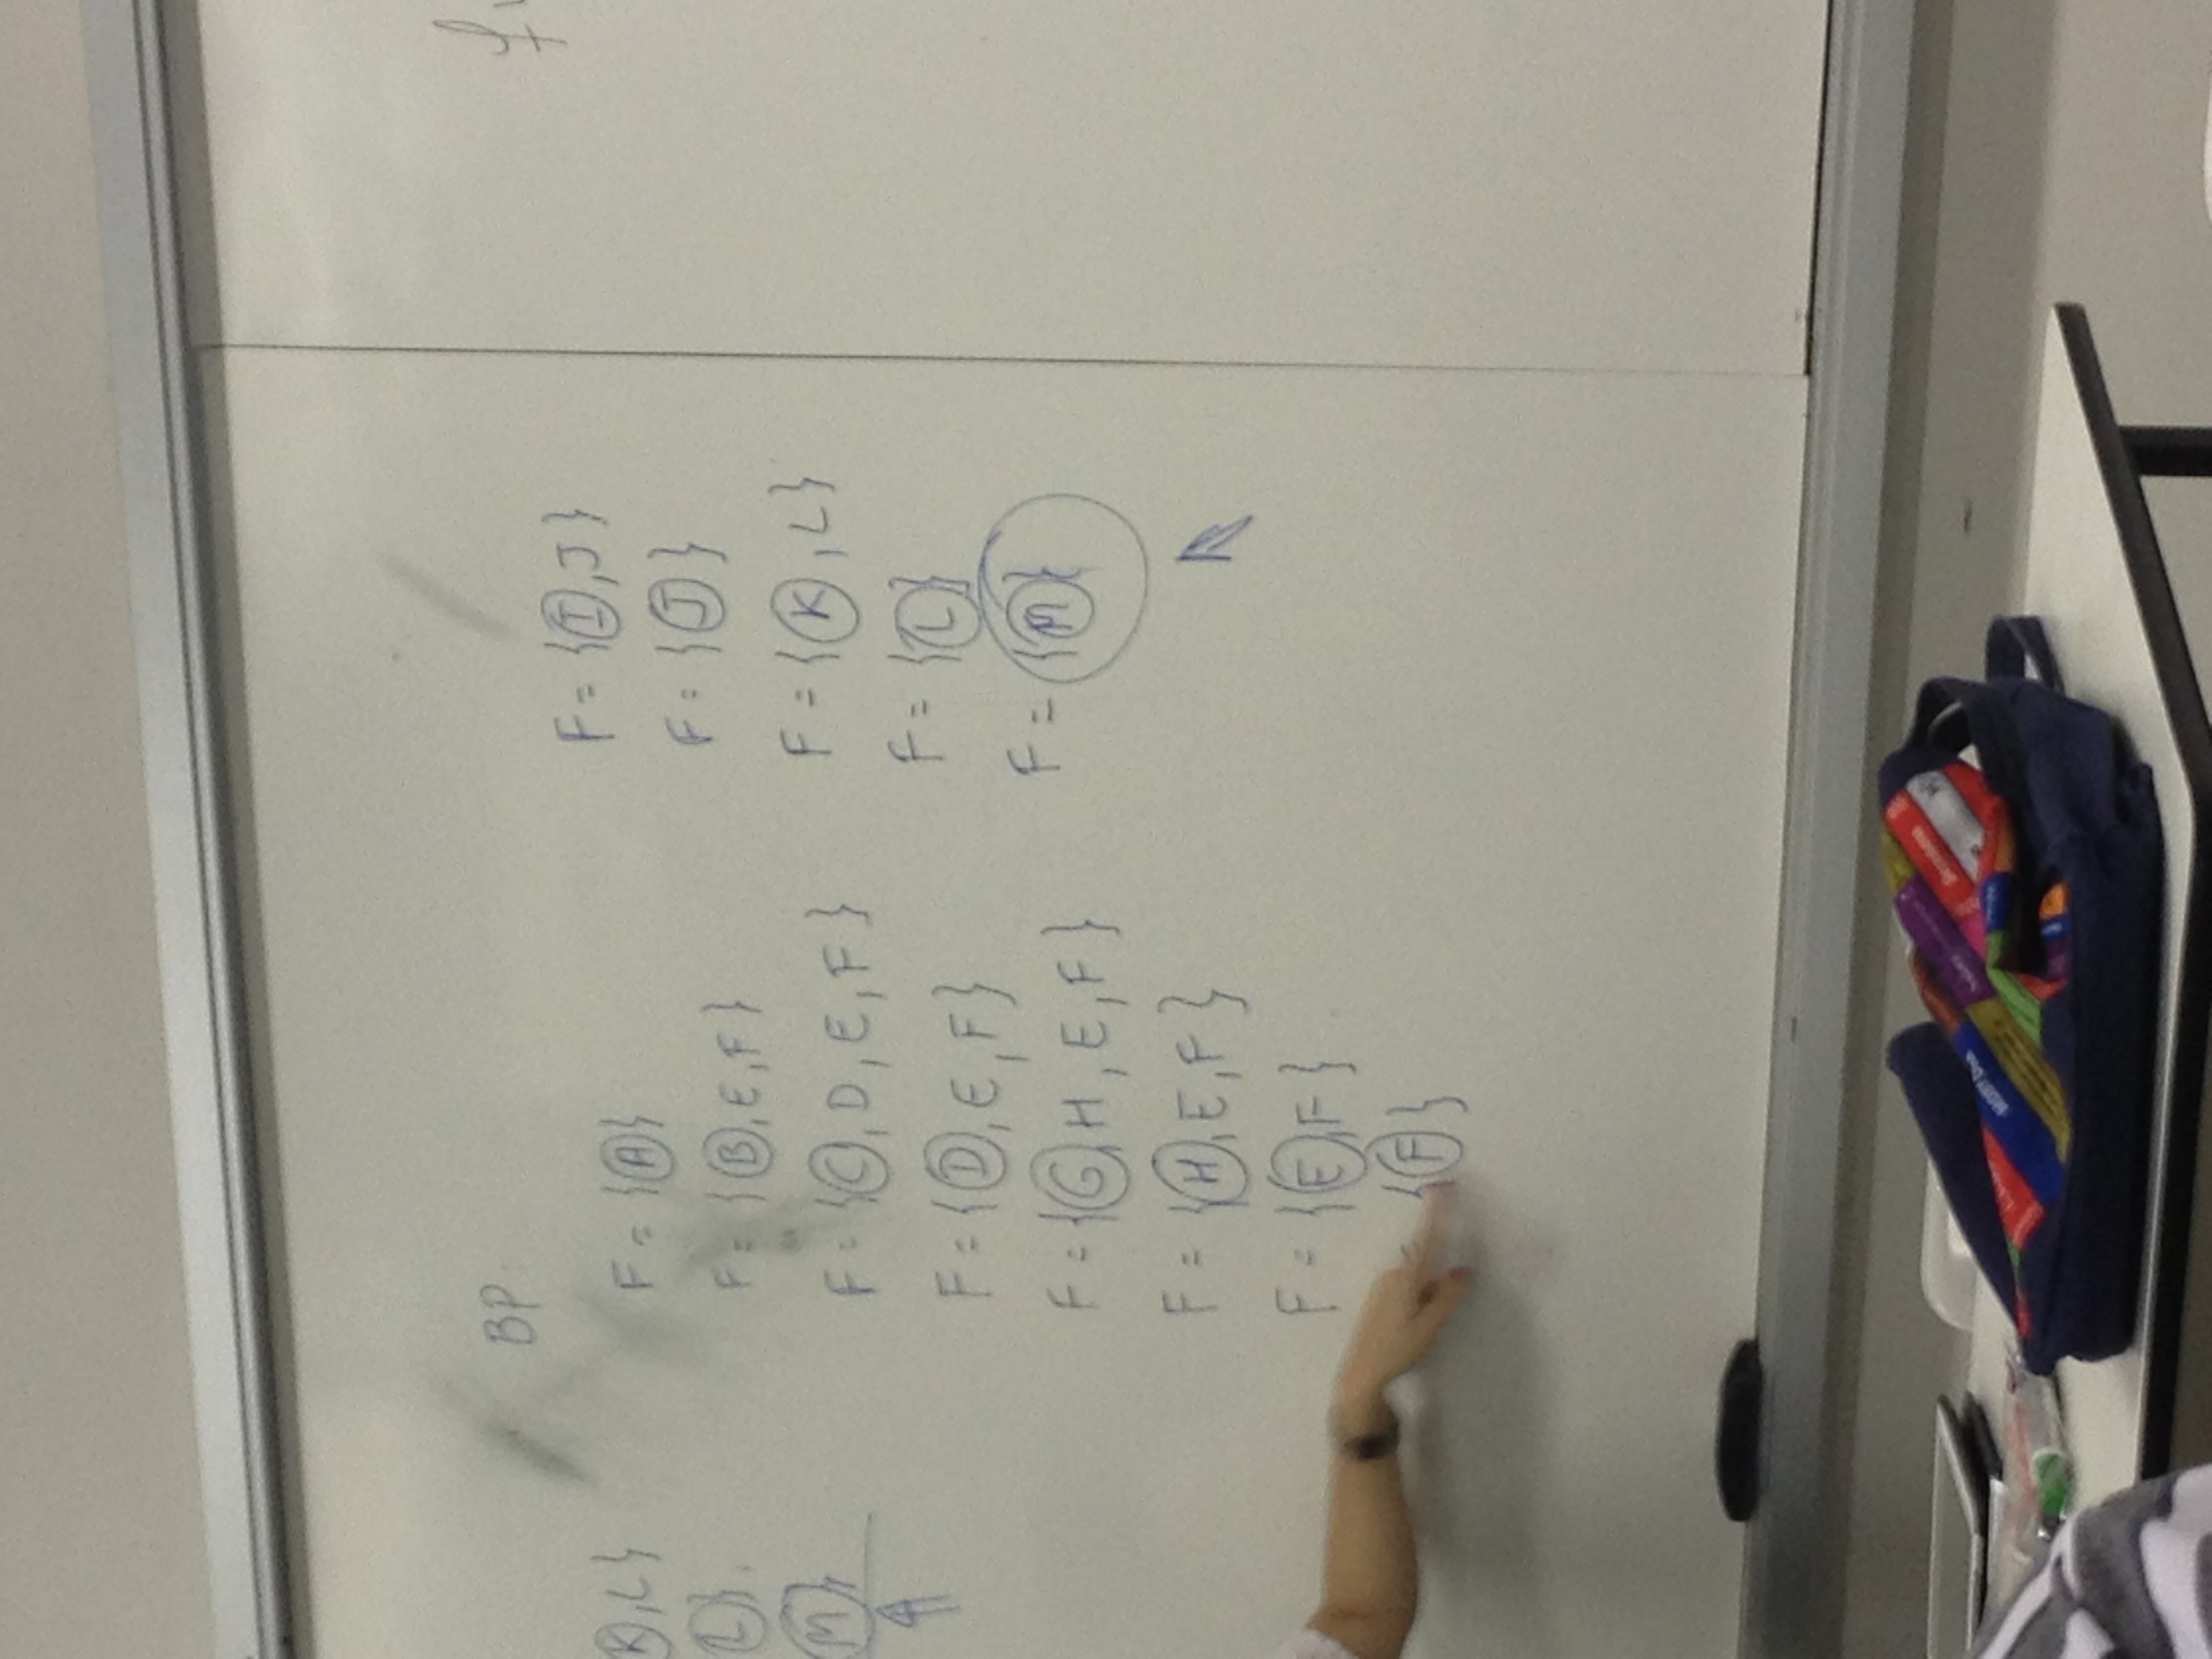 K, L}
L}.
M}
BP.
F = {A}
F = {B, E, F}
F = {C, D, E, F}
F = {D, E, F}
F = {G, H, E, F}
F = {H, E, F}
F = {E, F}
{F}
F = {I, J}
F = {J}
F = {K, L}
F = {L}
F = {M}
MOBY DICK